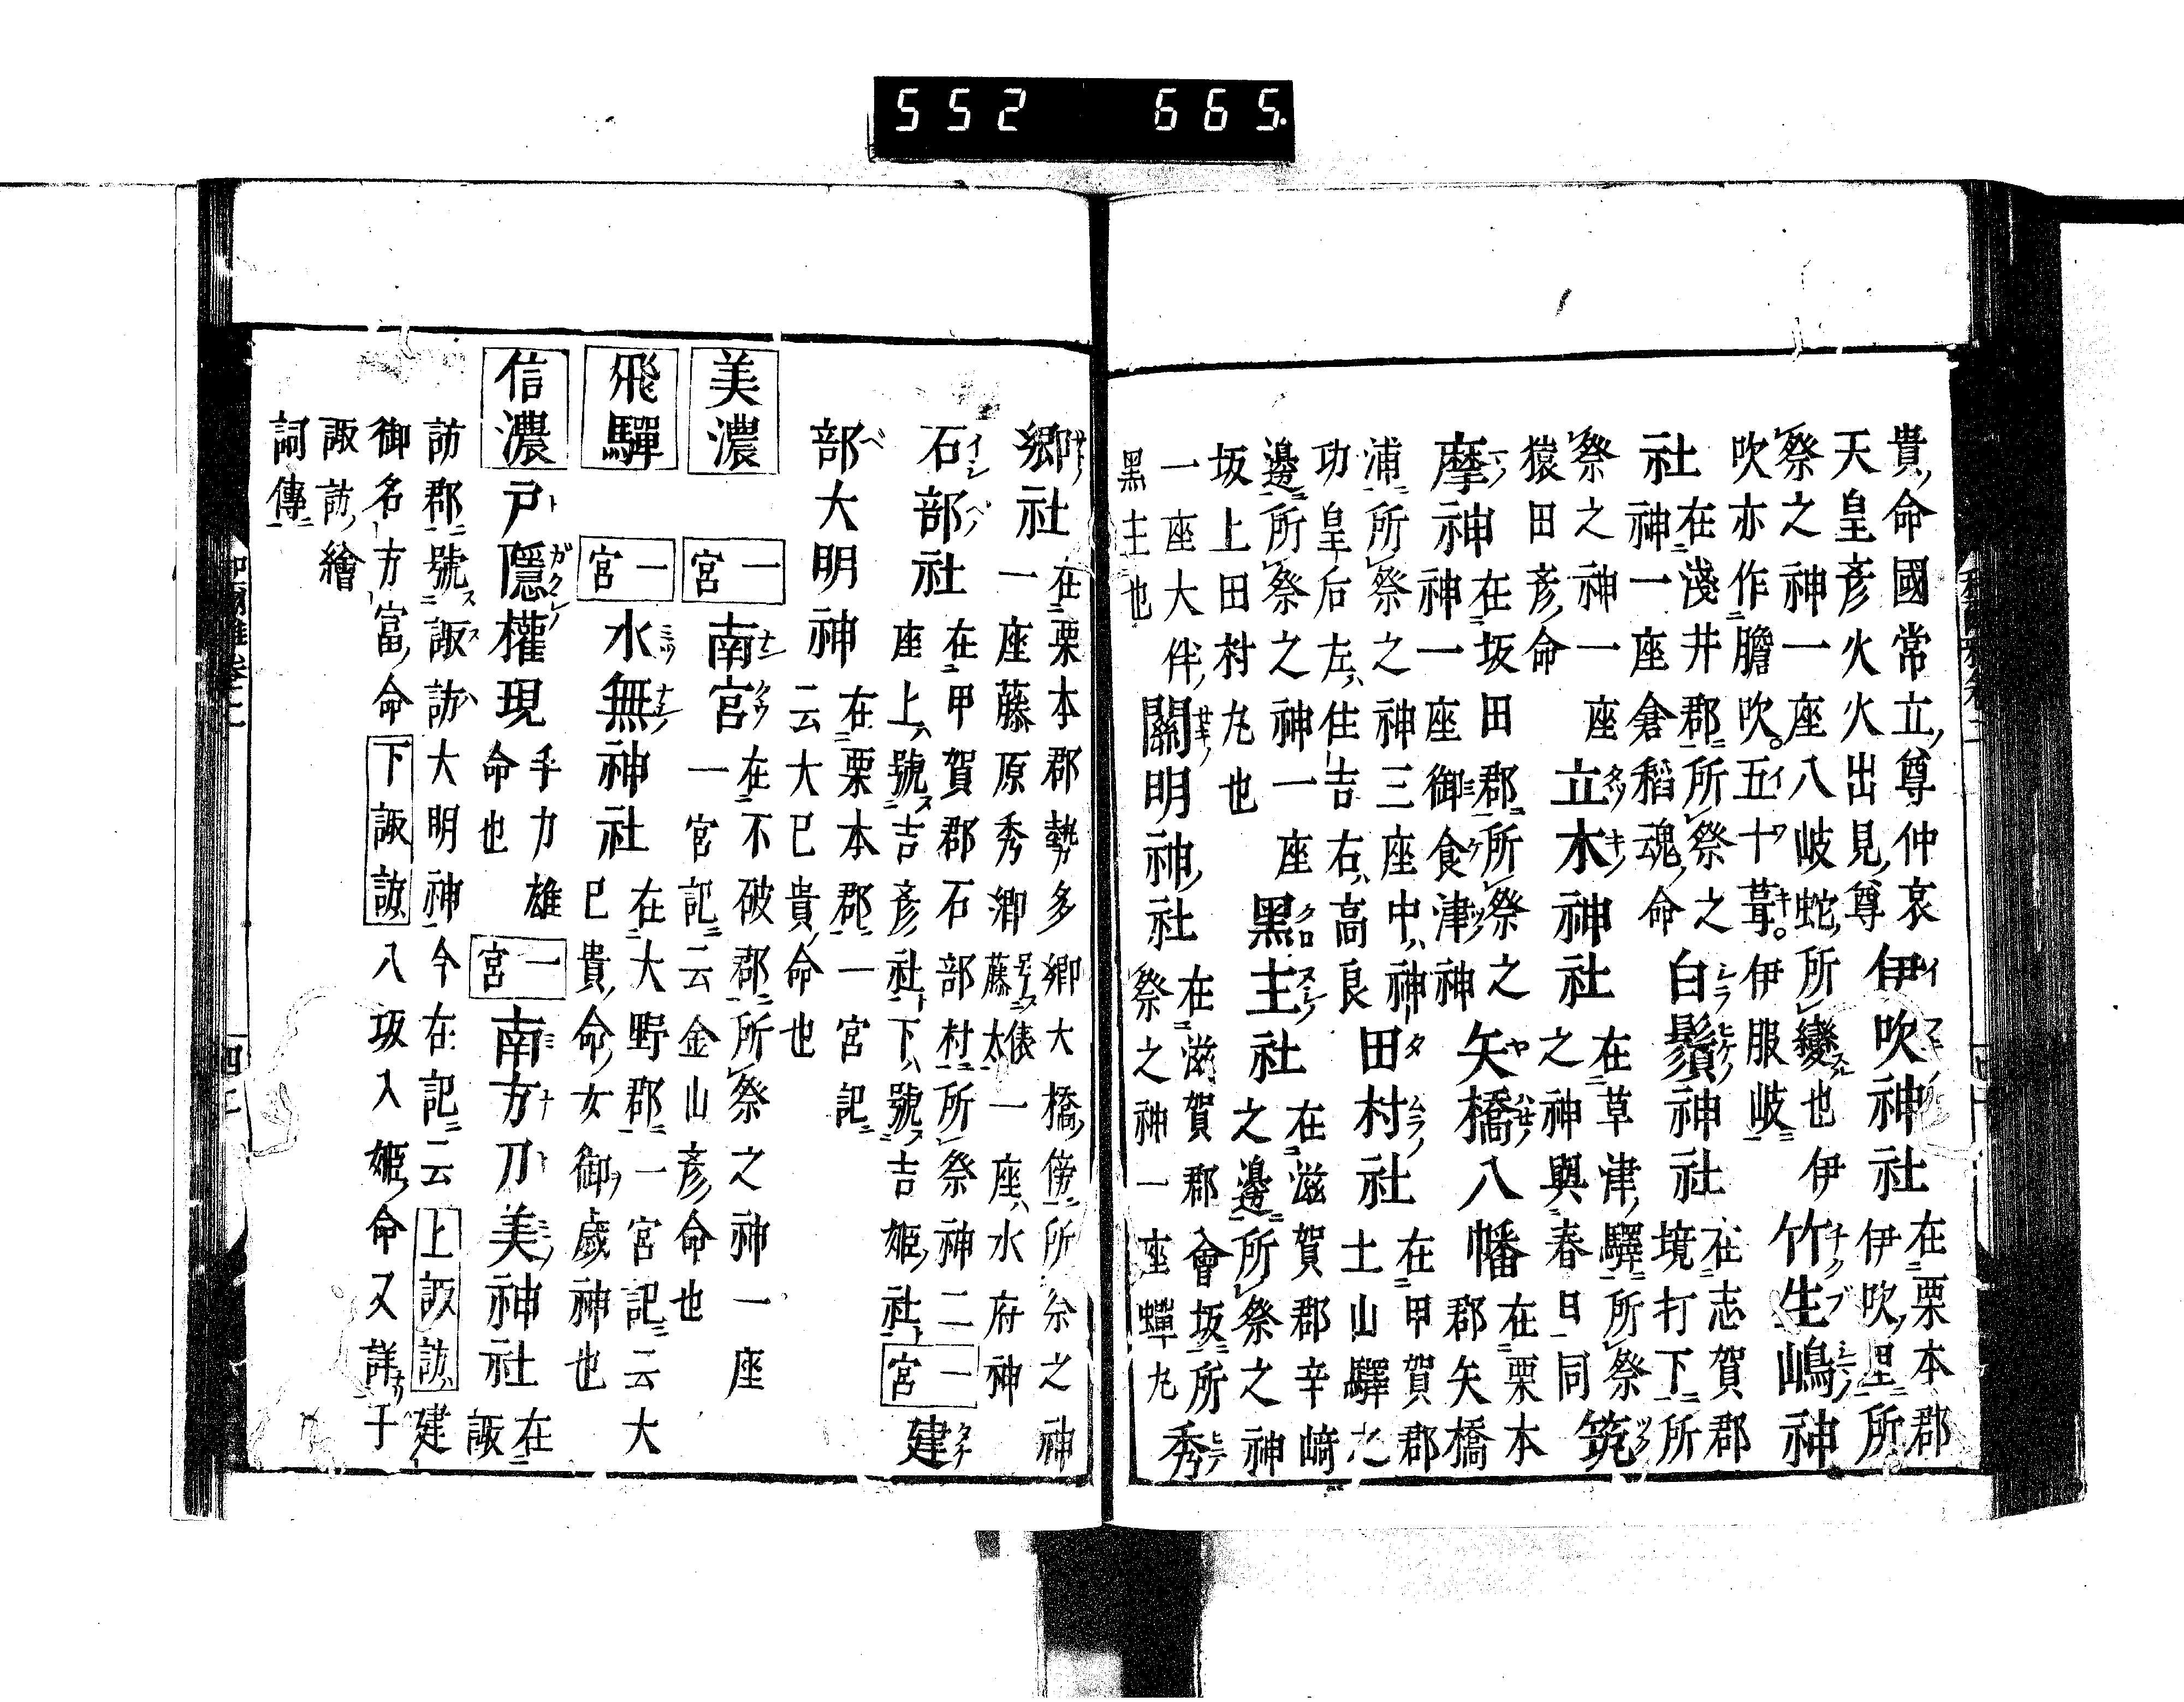 貴命國常立尊仲哀
天皇彦火火出見尊
伊吹神社
在栗本郡
伊吹里所
祭之神一座八岐蛇所變也伊
吹亦作膽吹五十葺伊服岐
竹生嶋神
社
在淺井郡所祭之
神一座倉稻魂命
白鬚神社
在志賀郡
境打下所
祭之神一座
猿田彦命
立木神社
在草津驛所祭
之神與春日同
筑
摩神
在坂田郡所祭之
神一座御食津神
矢橋八幡
在栗本
郡矢橋
浦所祭之神三座中神
功皇后左住吉右高良
田村社
在甲賀郡
土山驛之
邊所祭之神一座
坂上田村丸也
黑主社
在滋賀郡辛崎
之邊所祭之神
一座大伴
黑主也
關明神社
在滋賀郡會坂所
祭之神一座蟬丸
秀
郷社
在栗本郡勢多郷大橋傍所祭之神
一座藤原秀郷藤太俵一座水府神
石部社
在甲賀郡石部村所祭神二
座上號吉彦社下號吉姫社
一宮
建
部大明神
在栗本郡一宮記
云大巳貴命也
美濃
一宮
南宮
在不破郡所祭之神一座
一宮記云金山彦命也
飛驒
一宮
水無神社
在大野郡一宮記云大
巳貴命女御歳神也
信濃
戸隱權現
手力雄
命也
一宮
南方刀美神社
在
諏
訪郡號諏訪大明神今在記云上諏訪建
御名方富命下諏訪八坂入姫命又詳于
諏訪繪
詞傳
552 665